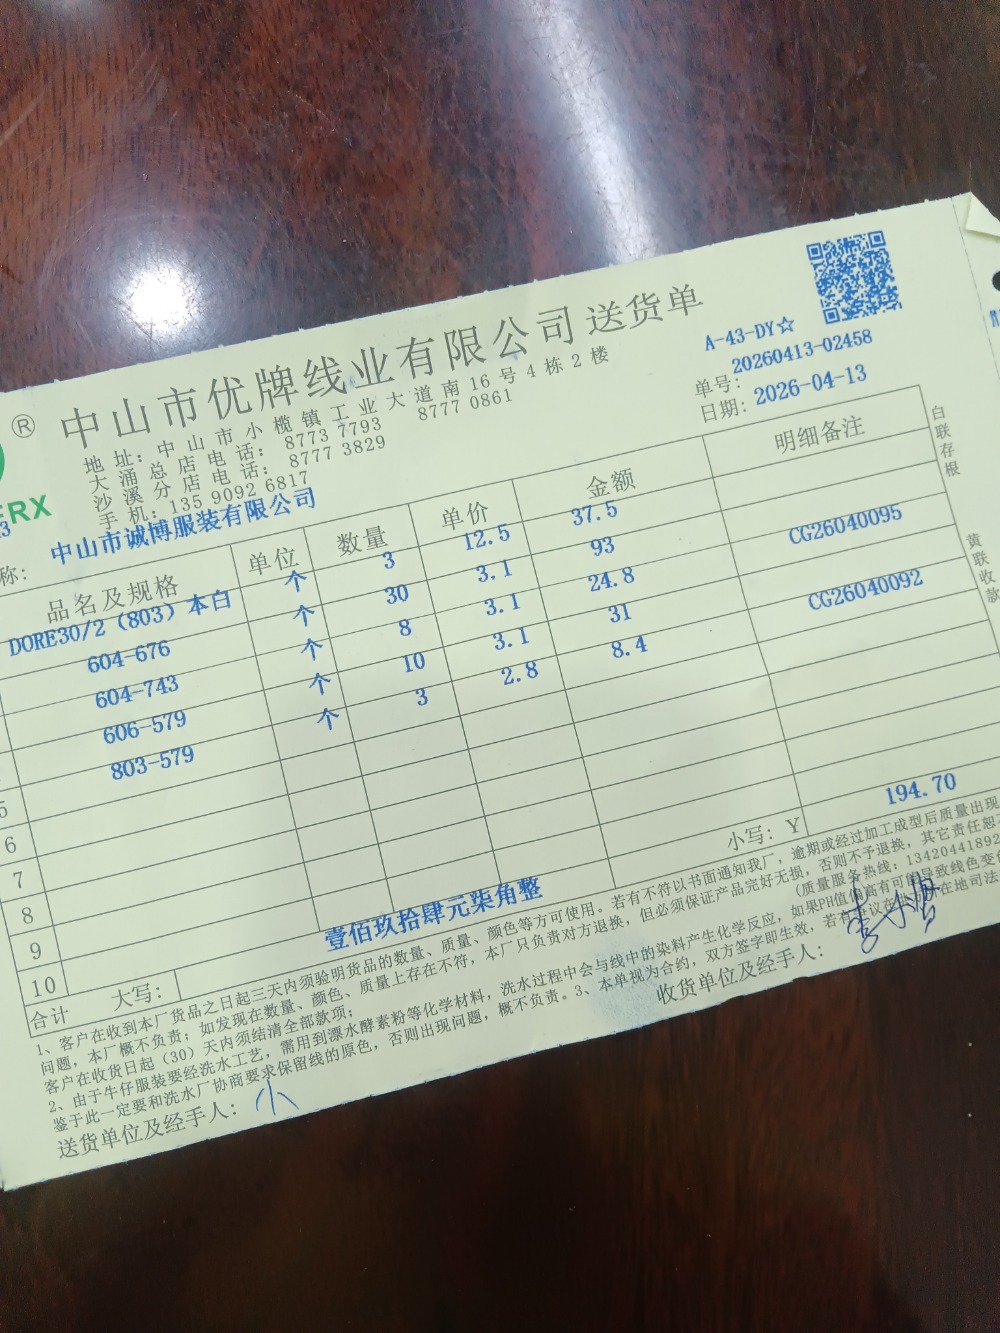 ®
中山市优牌线业有限公司 送货单
A-43-DY☆
地址：中山市小榄镇工业大道南16号4栋2楼
单号： 20260413-02458
大涌总店电话： 8773 7793 8777 0861
日期： 2026-04-13
沙溪分店电话： 8777 3829
手机：135 9092 6817
ERX
称： 中山市诚博服装有限公司
品名及规格 单位 数量 单价 金额 明细备注
DORE30/2（803）本白 个 3 12.5 37.5
604-676 个 30 3.1 93 CG26040095
604-743 个 8 3.1 24.8
606-579 个 10 3.1 31 CG26040092
803-579 个 3 2.8 8.4
5
6
7
8
9
10
合计 大写： 壹佰玖拾肆元柒角整 小写：Y 194.70
白联存根
黄联收款
1、客户在收到本厂货品之日起三天内须验明货品的数量、质量、颜色等方可使用。若有不符以书面通知我厂，逾期或经过加工成型后质量出现
问题，本厂概不负责；如发现在数量、颜色、质量上存在不符，本厂只负责对方退换，但必须保证产品完好无损，否则不予退换，其它责任恕
客户在收货日起（30）天内须结清全部款项； （质量服务热线：1342044189
2、由于牛仔服装要经洗水工艺，需用到漂水酵素粉等化学材料，洗水过程中会与线中的染料产生化学反应，如果PH值偏高有可能导致线色变
鉴于此一定要和洗水厂协商要求保留线的原色，否则出现问题，概不负责。3、本单视为合约，双方签字即生效，若有
送货单位及经手人： 小
收货单位及经手人：